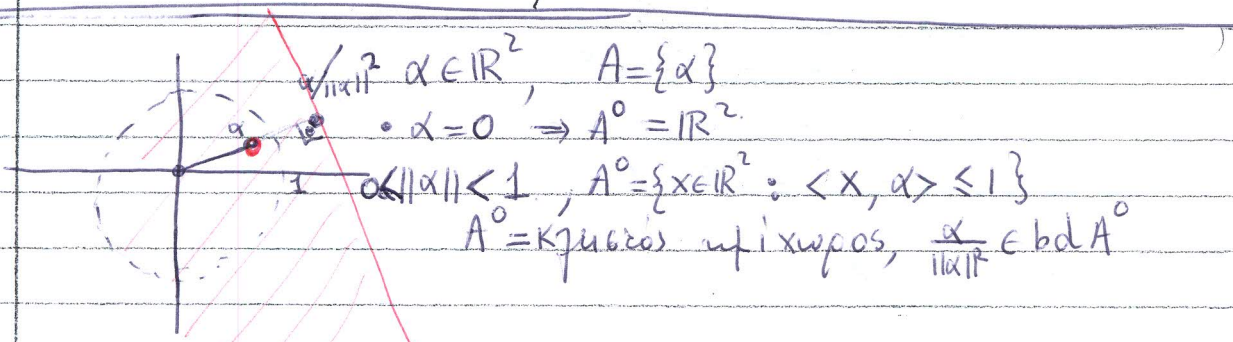 α/||α||² α ∈ ℝ², A = {α}
α • α = 0 ⇒ A⁰ = ℝ².
1 0<||α|| < 1, A⁰ = {x ∈ ℝ² : <x, α> ≤ 1}
A⁰ = κλειστός ημίχωρος, α/||α||² ∈ bd A⁰